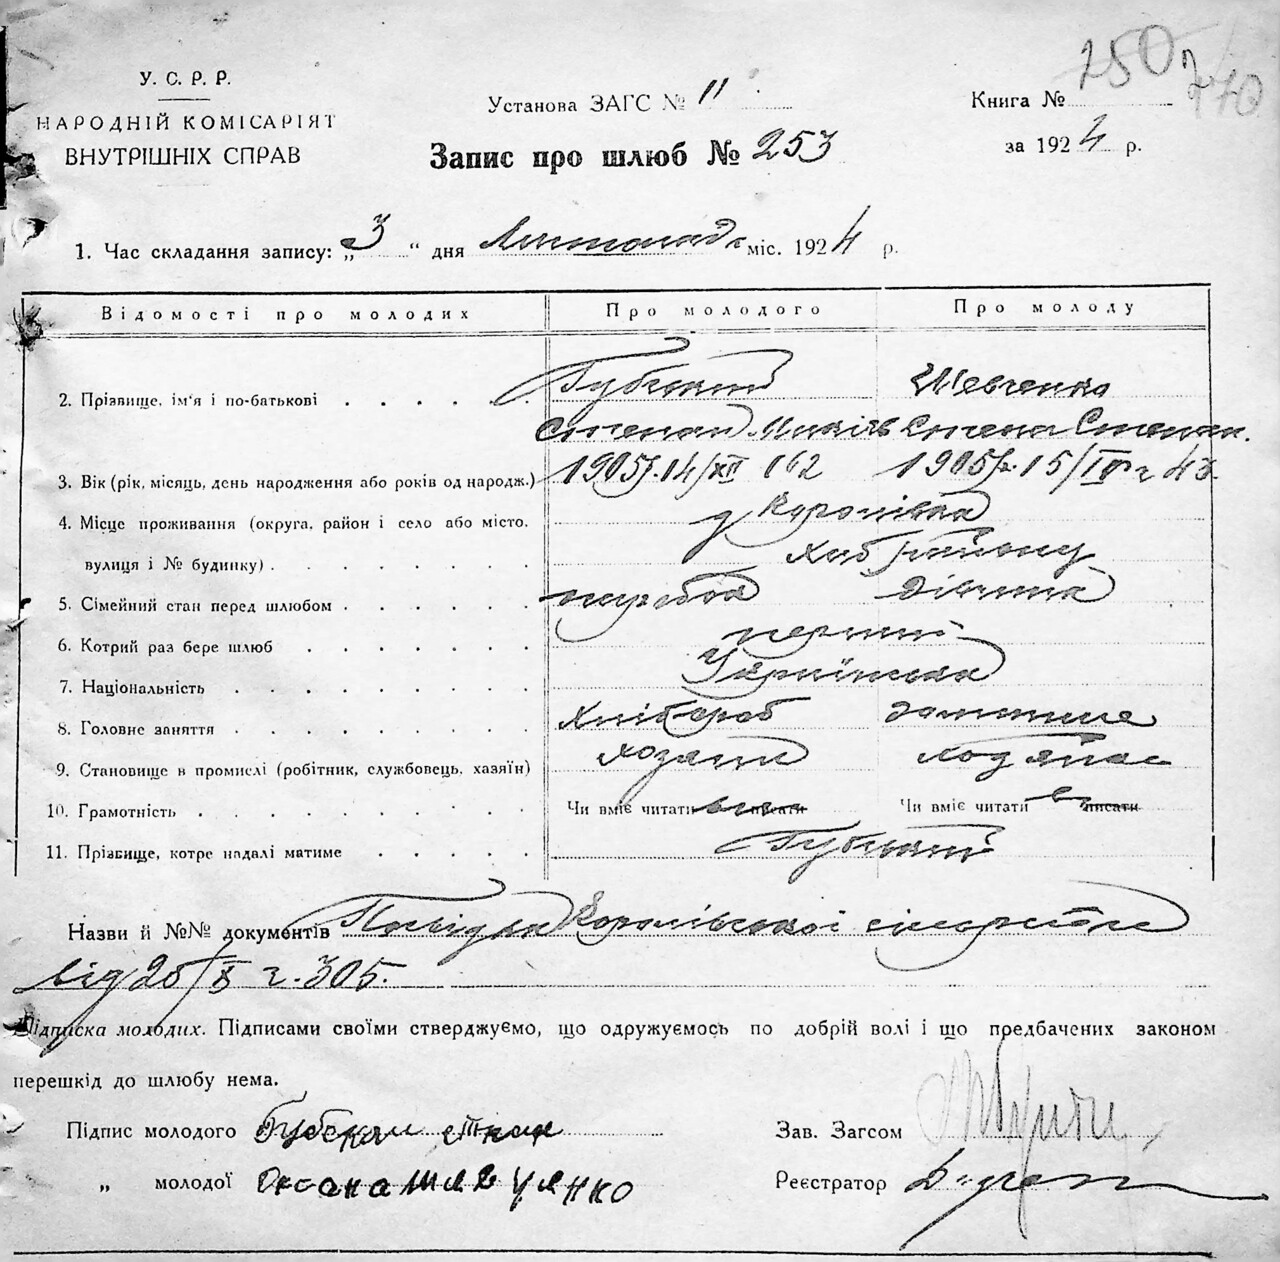 750
270
У. С. Р. Р.
НАРОДНІЙ КОМІСАРІЯТ
ВНУТРІШНІХ СПРАВ
Установа ЗАГС № 11
Книга №
Запис про шлюб № 253
за 1924 р.
1. Час складання запису: „3“ дня Листопада міс. 1924 р.
Відомості про молодих Про молодого Про молоду
2. Прізвище, ім'я і по-батькові Губський Шевченко
Степан Степан.
3. Вік (рік, місяць, день народження або років од народж.) 1905р. 14/XII 162 1905р. 15/IV 43
4. Місце проживання (округа, район і село або місто, Королівка
вулиця і № будинку) району
5. Сімейний стан перед шлюбом парубок дівчина
6. Котрий раз бере шлюб перший
7. Національність Українська
8. Головне заняття хлібороб домашнє
9. Становище в промислі (робітник, службовець, хазяїн) хозяин
10. Грамотність Чи вміє читати писати Чи вміє читати писати
11. Прізвище, котре надалі матиме Губський
Назви й №№ документів Посвідки Королівської сільради
від 25/X 305.
Підписка молодих. Підписами своїми стверджуємо, що одружуємось по добрій волі і що предбачених законом
перешкід до шлюбу нема.
Підпис молодого Губский
Зав. Загсом
„ молодої Оксана Шевченко
Реєстратор